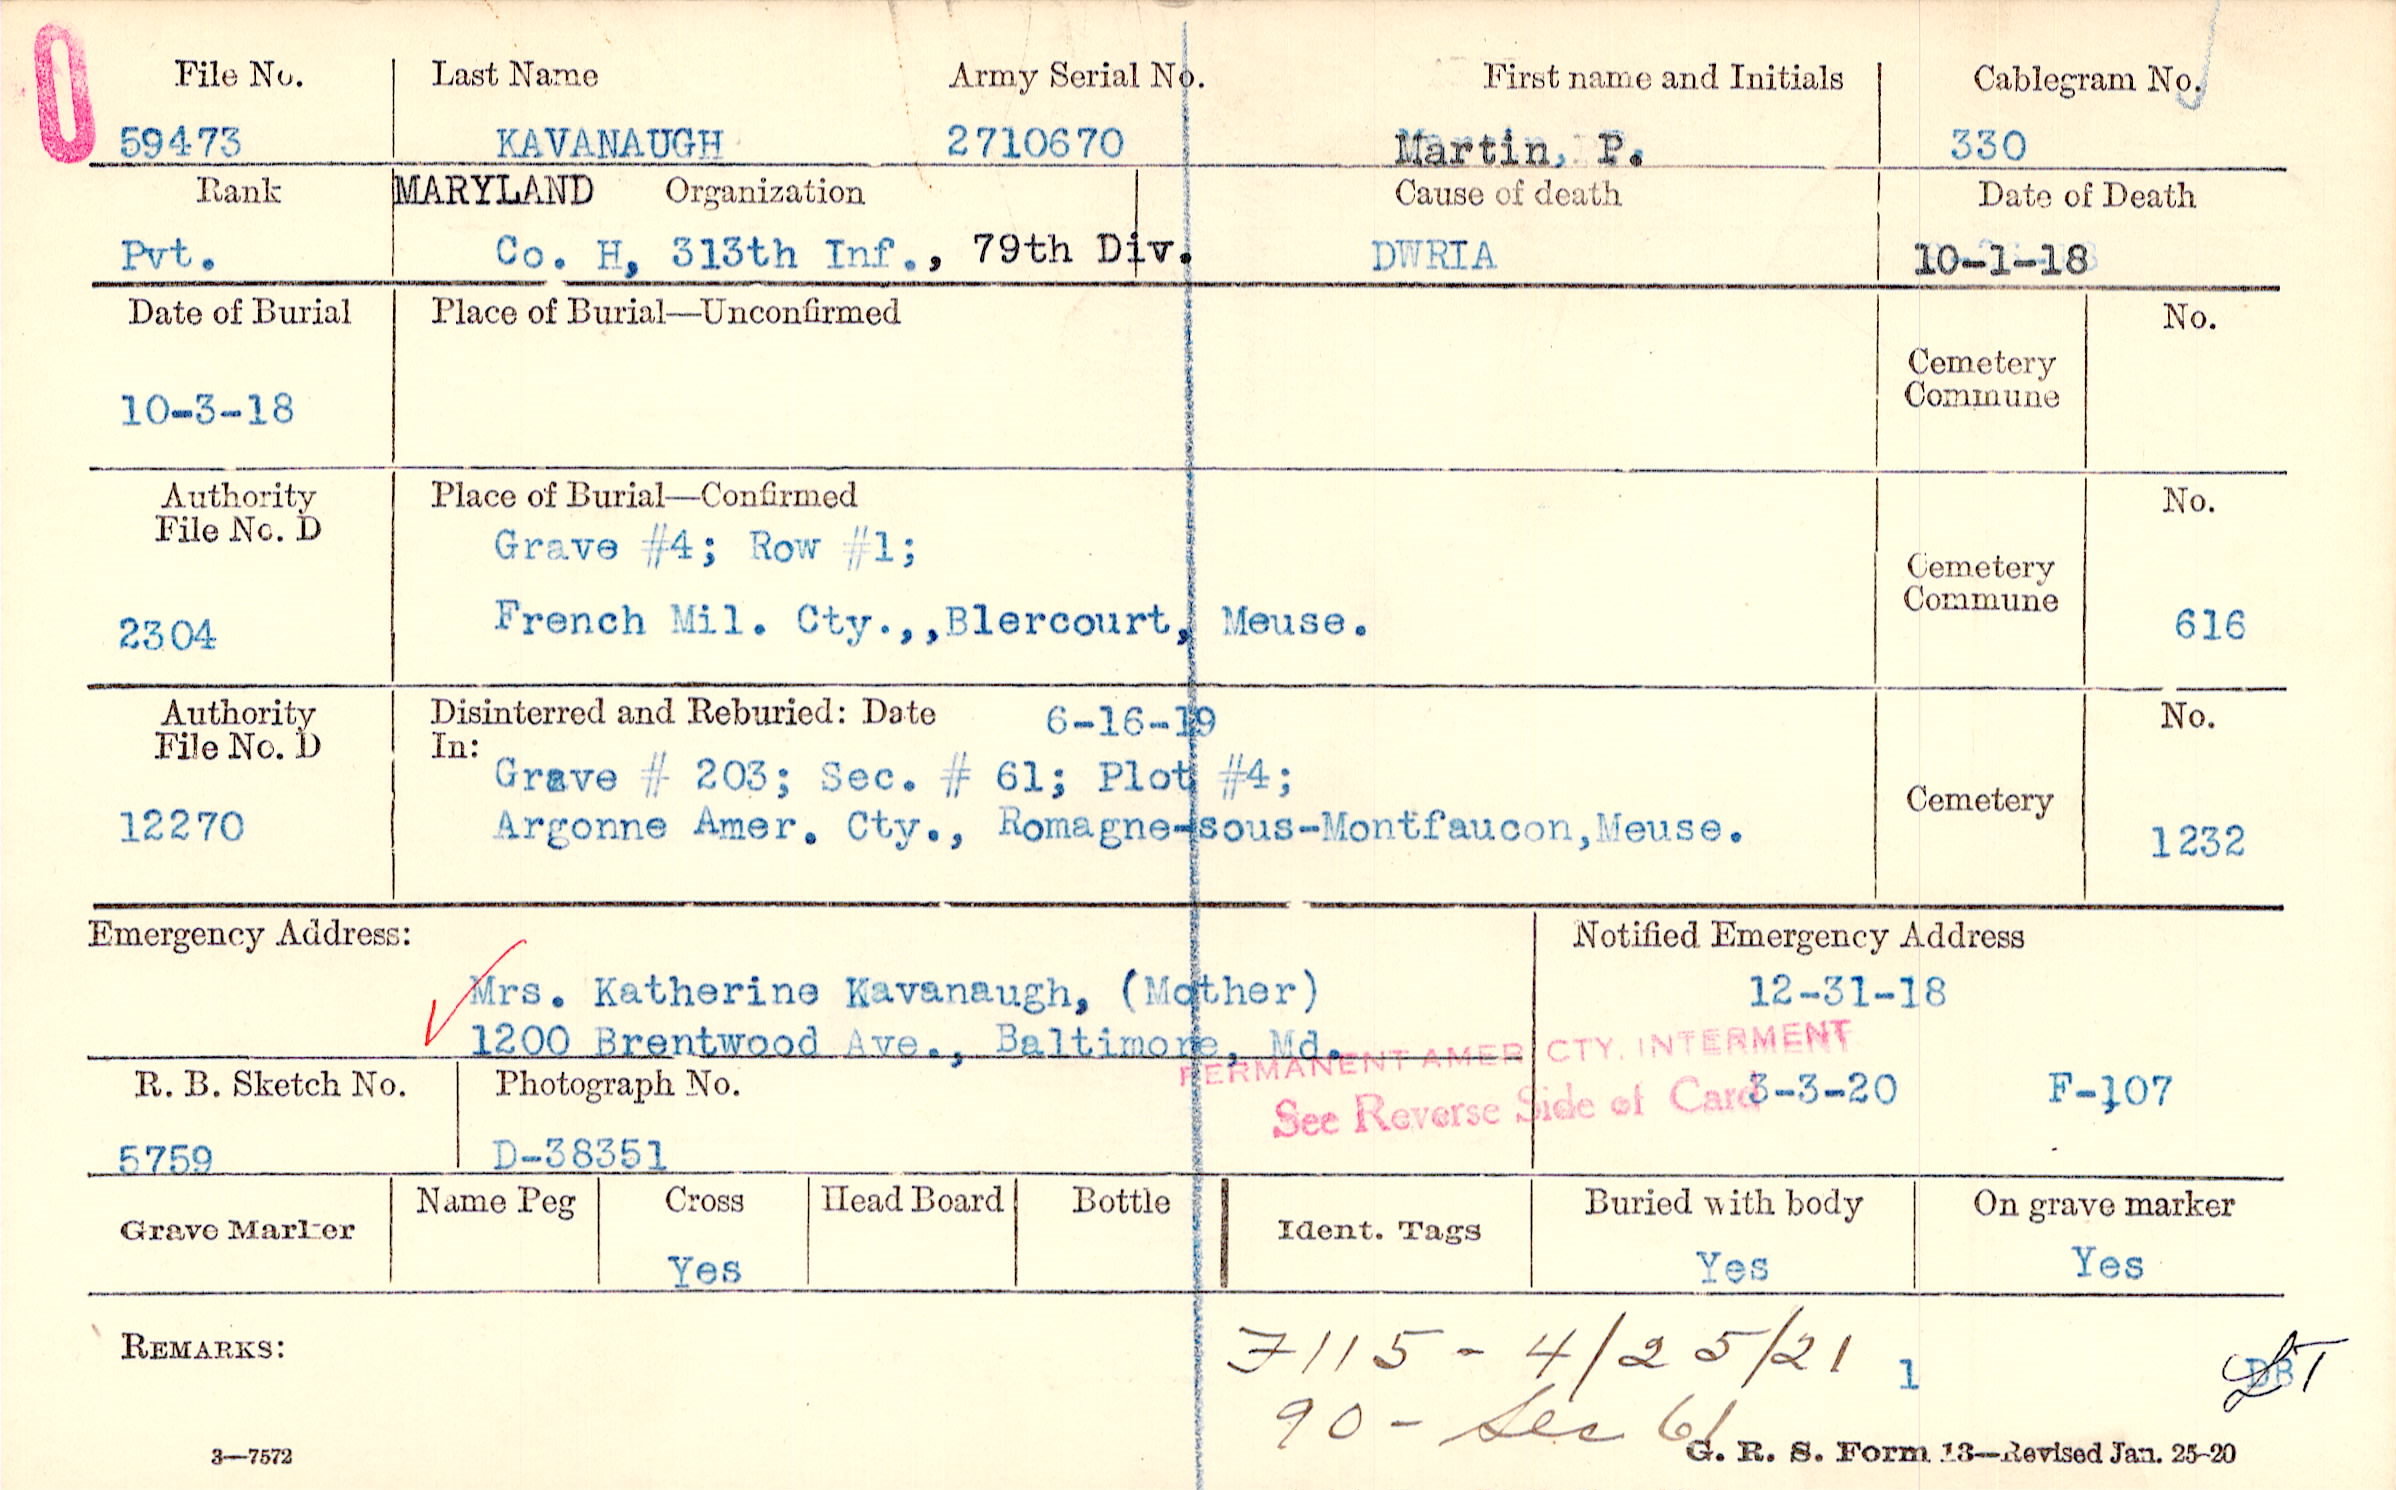 File No. Last Name Army Serial No. First name and Initials Cablegram No.
59473 KAVANAUGH 2710670 Martin, P. 330
Rank MARYLAND Organization Cause of death Date of Death
Pvt. Co. H, 313th Inf., 79th Div. DWRIA 10-1-18
Date of Burial Place of Burial—Unconfirmed No.
Cemetery
Commune
10-3-18
Authority Place of Burial—Confirmed No.
File No. D
Grave #4; Row #1;
Cemetery
Commune
2304 French Mil. Cty.,,Blercourt, Meuse. 616
Authority Disinterred and Reburied: Date 6-16-19 No.
File No. D In:
Grave # 203; Sec. # 61; Plot #4;
Cemetery
12270 Argonne Amer. Cty., Romagne-sous-Montfaucon,Meuse. 1232
Emergency Address: Notified Emergency Address
Mrs. Katherine Kavanaugh, (Mother) 12-31-18
1200 Brentwood Ave., Baltimore, Md.
PERMANENT AMER CTY. INTERMENT
R. B. Sketch No. Photograph No. See Reverse Side of Card 3-3-20 F-107
5759 D-38351
Grave Marker Name Peg Cross Head Board Bottle Ident. Tags Buried with body On grave marker
Yes Yes Yes
REMARKS: 7115 - 4/25/21 1
90 - Sec 61
3—7572 G. R. S. Form 13—Revised Jan. 25-20